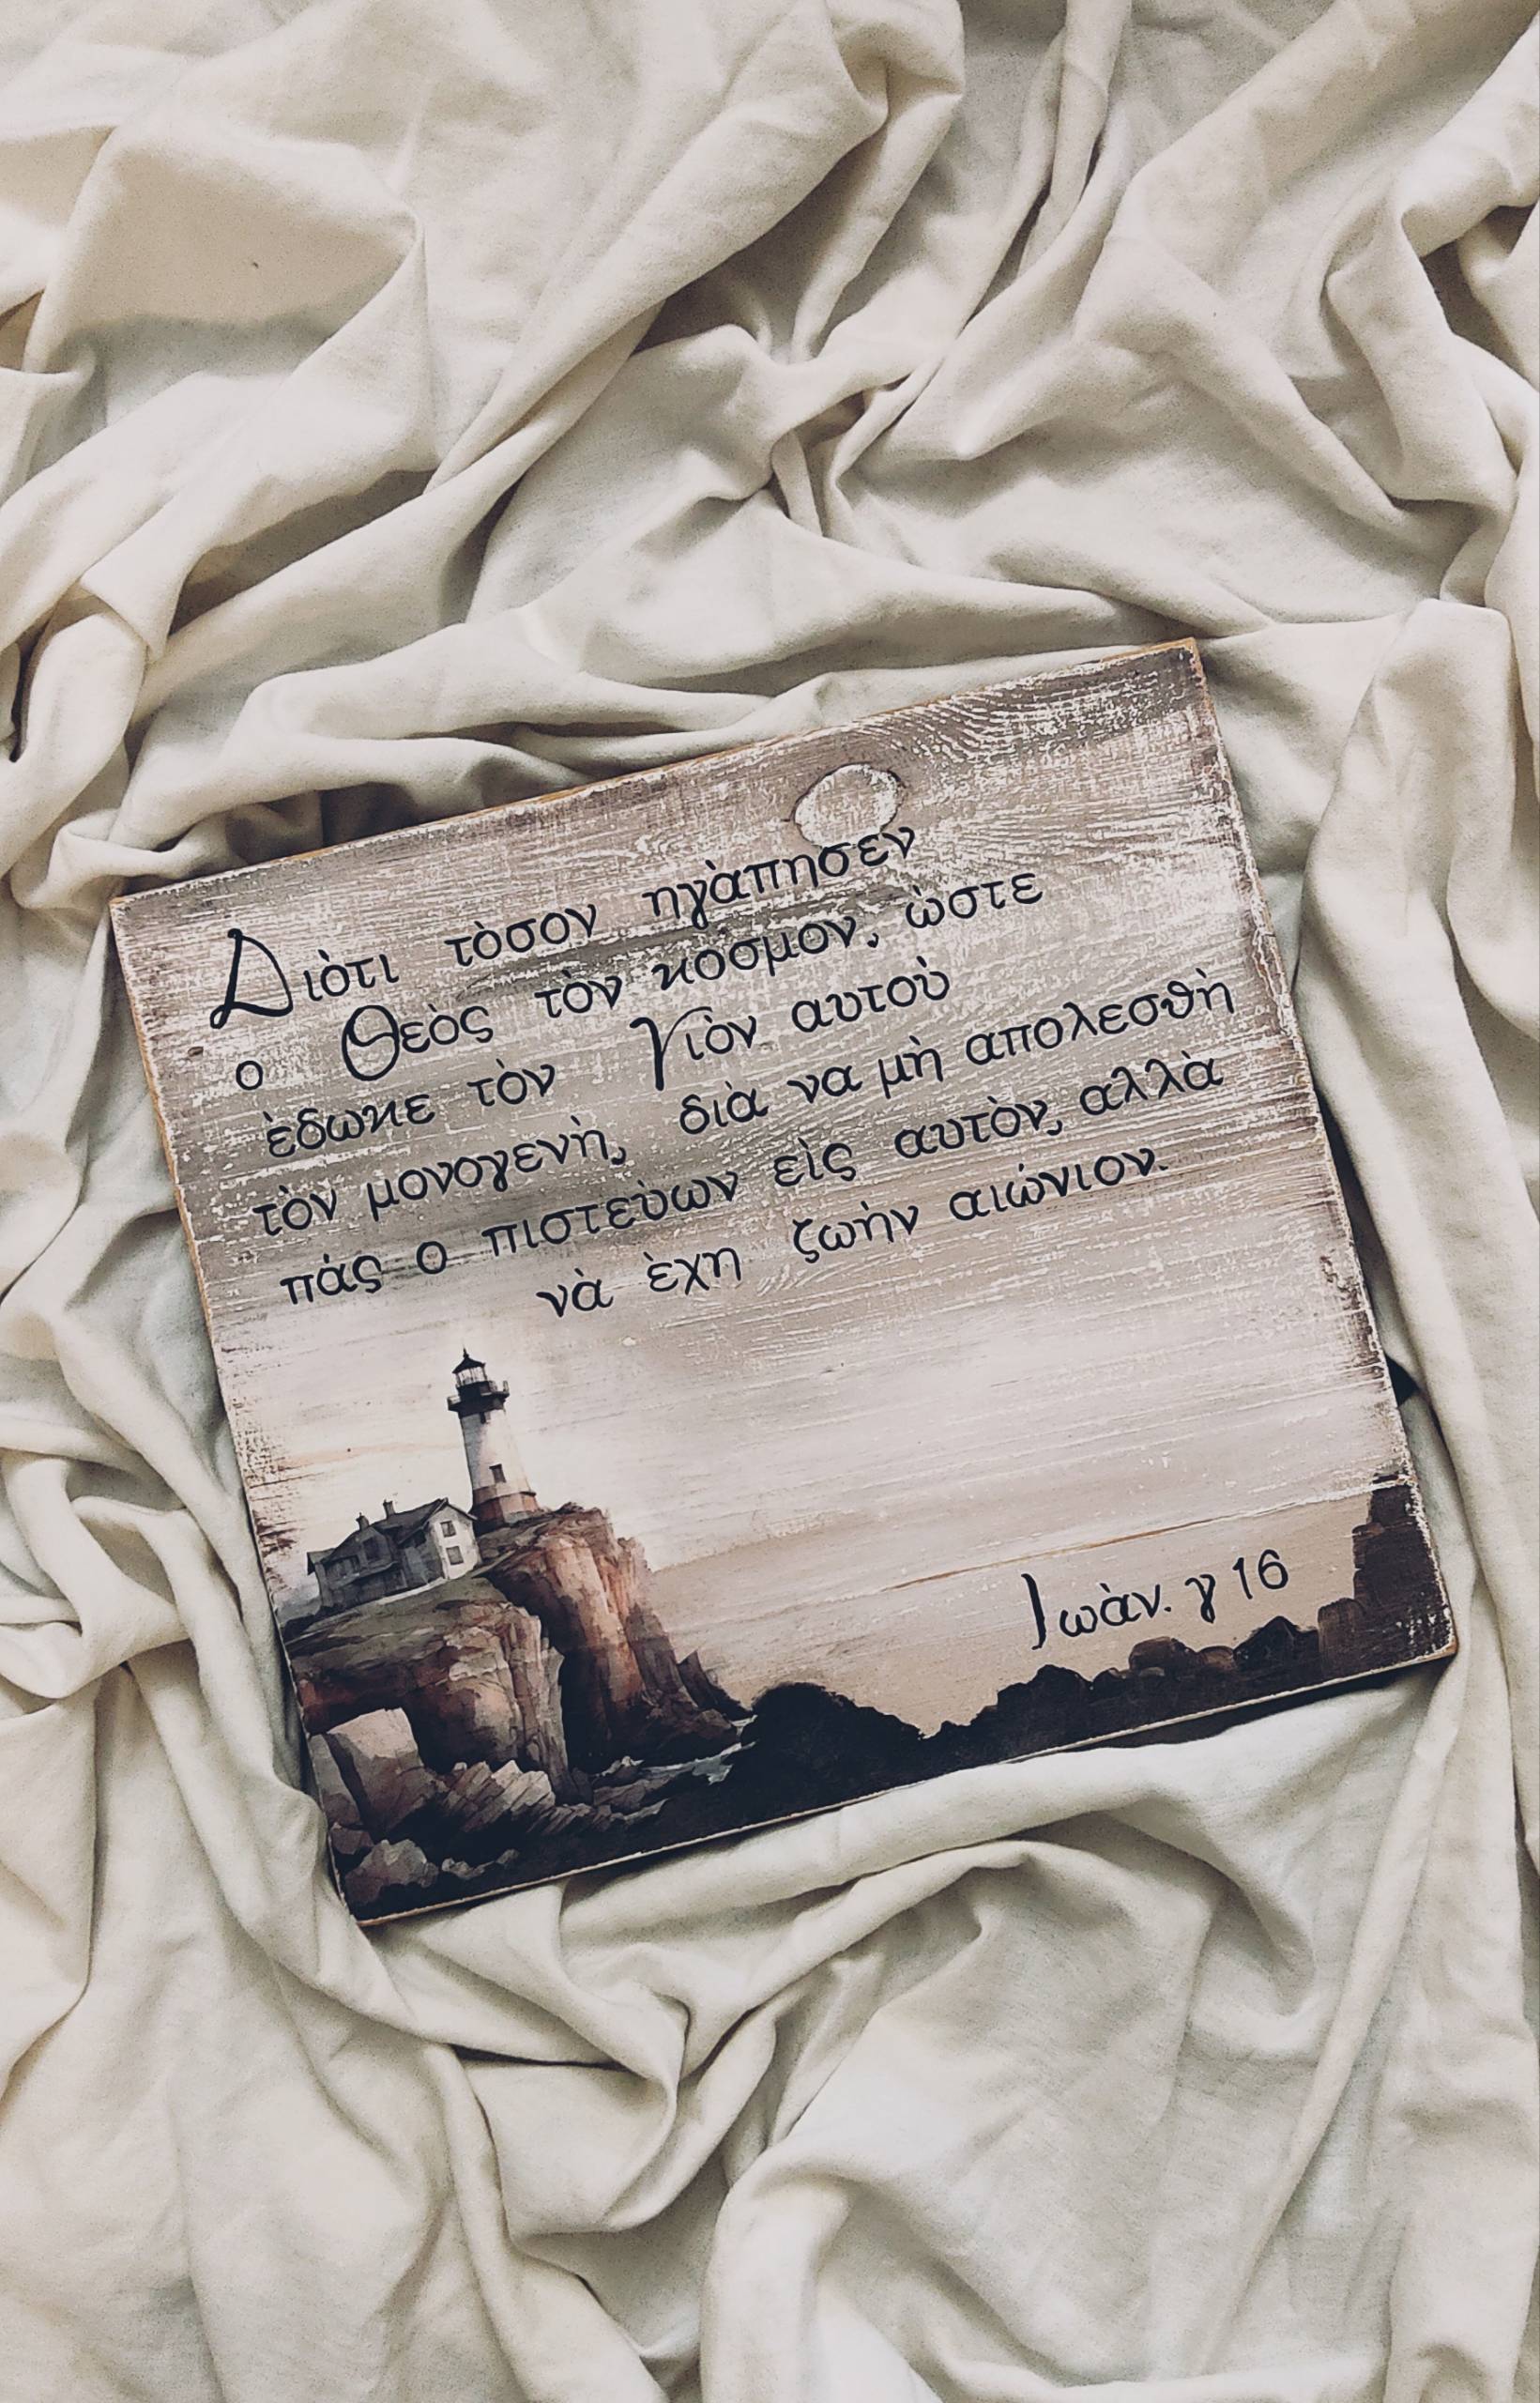 Διὸτι τὸσον ηγὰπησεν
ο Θεὸς τὸν κὸσμον, ὼστε
ὲδωκε τὸν Υιὸν αυτοὺ
τὸν μονογενὴ, διὰ να μὴ απολεσθὴ
πὰς ο πιστεὺων εὶς αυτὸν, αλλὰ
νὰ ὲχη ζωὴν αιὼνιον.
Ιωὰν. γ 16